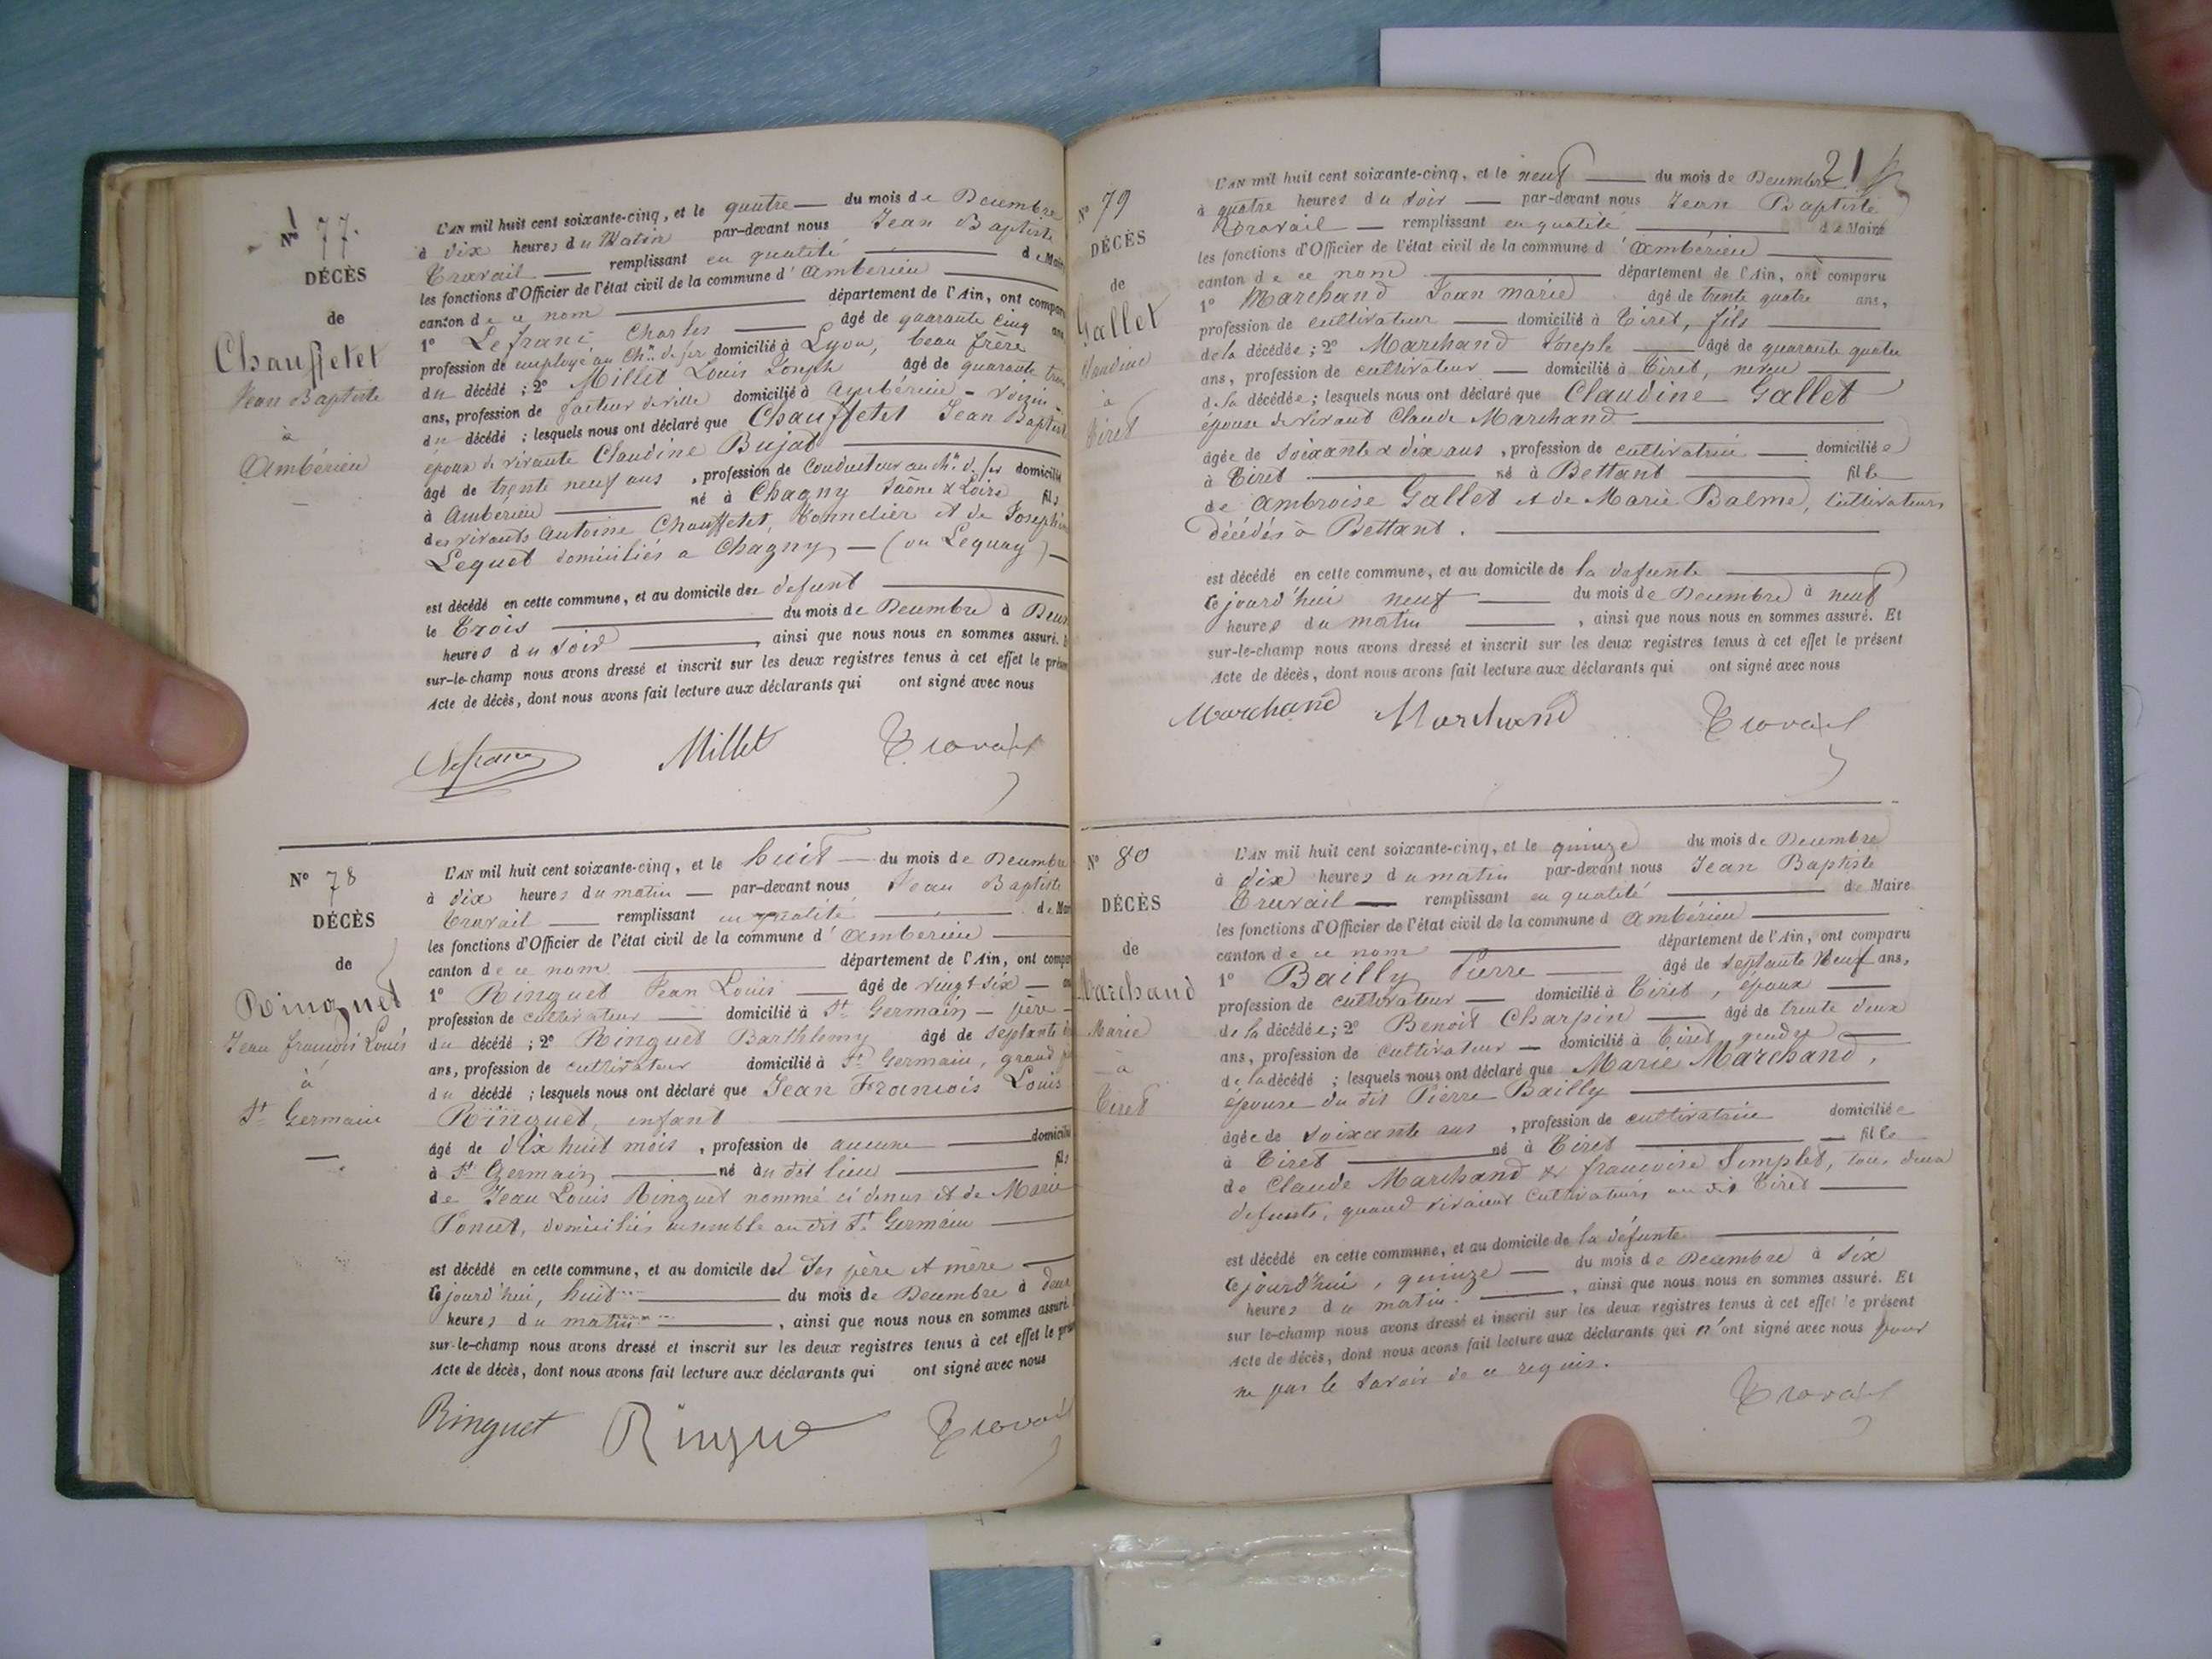 N° 77.
DÉCÈS
de
Chauffetet
Jean Baptiste
à
Ambérieu
L'AN mil huit cent soixante-cinq, et le quatre du mois de Decembre
à dix heures du Matin par-devant nous Jean Baptiste
Travail remplissant en qualité de Maire
les fonctions d'Officier de l'état civil de la commune d'Ambérieu
canton de ce nom département de l'Ain, ont comparu
1° Lefranc, Charles âgé de quarante cinq ans
profession de employé au Ch.n de fer domicilié à Lyon, beau frère
du décédé ; 2° Millet Louis Joseph âgé de quarante trois
ans, profession de facteur de ville domicilié à Ambérieu - voisin
du décédé ; lesquels nous ont déclaré que Chauffetet Jean Baptiste
époux de vivante Claudine Bujat
âgé de trente neuf ans , profession de Conducteur au ch.n d. fer domicilié
à Ambérieu né à Chagny Saône & Loire fils
des vivants Antoine Chauffetet, Tonnelier et de Josephine
Lequet domiciliés a Chagny, — (ou Lequay) —
est décédé en cette commune, et au domicile du defunt
le Trois du mois de Decembre à Deux
heures du soir , ainsi que nous nous en sommes assuré. Et
sur-le-champ nous avons dressé et inscrit sur les deux registres tenus à cet effet le présent
Acte de décès, dont nous avons fait lecture aux déclarants qui ont signé avec nous
Lefranc Millet Travail
N° 78
DÉCÈS
de
Ringuet
Jean françois Louis
à
St Germain
L'AN mil huit cent soixante-cinq, et le huit du mois de Decembre
à dix heures du matin par-devant nous Jean Baptiste
Travail remplissant en qualité de Maire
les fonctions d'Officier de l'état civil de la commune d'Ambérieu
canton de ce nom département de l'Ain, ont comparu
1° Ringuet Jean Louis âgé de vingt six ans
profession de cultivateur domicilié à St Germain - père
du décédé ; 2° Ringuet Barthlemy âgé de septante
ans, profession de cultivateur domicilié à St Germain, grand
du décédé ; lesquels nous ont déclaré que Jean François Louis
Ringuet, enfant
âgé de dix huit mois , profession de aucune domicilié
à St Germain né au dit lieu fils
de Jean Louis Ringuet nommé ci denus et de Marie
Poncet, domiciliés ensemble au dit St Germain
est décédé en cette commune, et au domicile de ses père et mère
Ce jourd'hui, huit du mois de Decembre à deux
heures du matin , ainsi que nous nous en sommes assuré.
sur-le-champ nous avons dressé et inscrit sur les deux registres tenus à cet effet le présent
Acte de décès, dont nous avons fait lecture aux déclarants qui ont signé avec nous
Ringuet Ringue Travail
21
N° 79
DÉCÈS
de
Gallet
Claudine
à
Tiret
L'AN mil huit cent soixante-cinq, et le neuf du mois de Decembre
à quatre heures du soir par-devant nous Jean Baptiste
Travail remplissant en qualité de Maire
les fonctions d'Officier de l'état civil de la commune d'Ambérieu
canton de ce nom département de l'Ain, ont comparu
1° Marchand Jean marie âgé de trente quatre ans,
profession de cultivateur domicilié à Tiret, fils
de la décédée ; 2° Marchand Joseph âgé de quarante quatre
ans, profession de cultivateur domicilié à Tiret, neveu
de la décédée ; lesquels nous ont déclaré que Claudine Gallet
épouse de vivant Claude Marchand
âgée de soixante & dix ans , profession de cultivatrice domiciliée
à Tiret né à Bettant fille
de Ambroise Gallet et de Marie Balme, Cultivateurs
décédés à Bettant.
est décédé en cette commune, et au domicile de la defunte
Ce jourd'hui neuf du mois de Decembre à neuf
heures du matin , ainsi que nous nous en sommes assuré. Et
sur-le-champ nous avons dressé et inscrit sur les deux registres tenus à cet effet le présent
Acte de décès, dont nous avons fait lecture aux déclarants qui ont signé avec nous
Marchand Marchand Travail
N° 80
DÉCÈS
de
Marchand
Marie
à
Tiret
L'AN mil huit cent soixante-cinq, et le quinze du mois de Decembre
à dix heures du matin par-devant nous Jean Baptiste
Travail remplissant en qualité de Maire
les fonctions d'Officier de l'état civil de la commune d Ambérieu
canton de ce nom département de l'Ain, ont comparu
1° Bailly Pierre âgé de septante Neuf ans,
profession de cultivateur domicilié à Tiret, époux
de la décédée ; 2° Benoit Charpin âgé de trente deux
ans, profession de Cultivateur domicilié à Tiret, gendre
de la décédé ; lesquels nous ont déclaré que Marie Marchand,
épouse du dit Pierre Bailly
âgée de soixante ans , profession de cultivatrice domiciliée
à Tiret né à Tiret fille
de Claude Marchand & françoise Simplet, tous deux
defunts, quand vivaient Cultivateurs au dit Tiret
est décédé en cette commune, et au domicile de la défunte
Ce jourd'hui, quinze du mois de Decembre à six
heures du matin. , ainsi que nous nous en sommes assuré. Et
sur le-champ nous avons dressé et inscrit sur les deux registres tenus à cet effet le présent
Acte de décès, dont nous avons fait lecture aux déclarants qui n'ont signé avec nous pour
ne pas le savoir de ce requis.
Travail